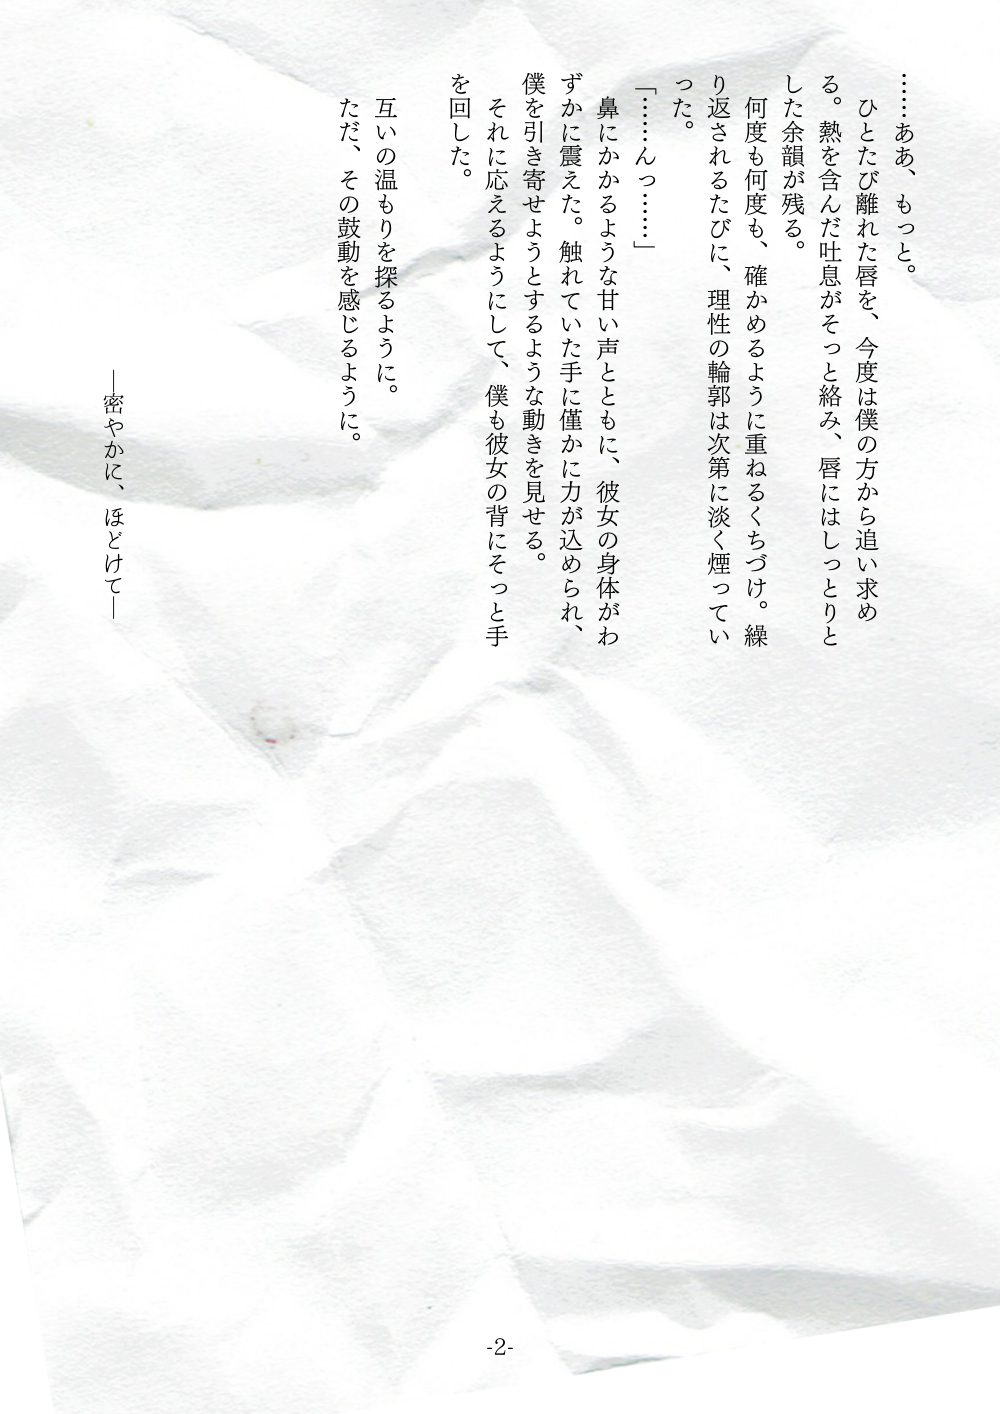 ……ああ、もっと。
　ひとたび離れた唇を、今度は僕の方から追い求め
る。熱を含んだ吐息がそっと絡み、唇にはしっとりと
した余韻が残る。
　何度も何度も、確かめるように重ねるくちづけ。繰
り返されるたびに、理性の輪郭は次第に淡く煙ってい
った。
「……んっ……」
　鼻にかかるような甘い声とともに、彼女の身体がわ
ずかに震えた。触れていた手に僅かに力が込められ、
僕を引き寄せようとするような動きを見せる。
　それに応えるようにして、僕も彼女の背にそっと手
を回した。
　互いの温もりを探るように。
　ただ、その鼓動を感じるように。
―密やかに、ほどけて―
-2-